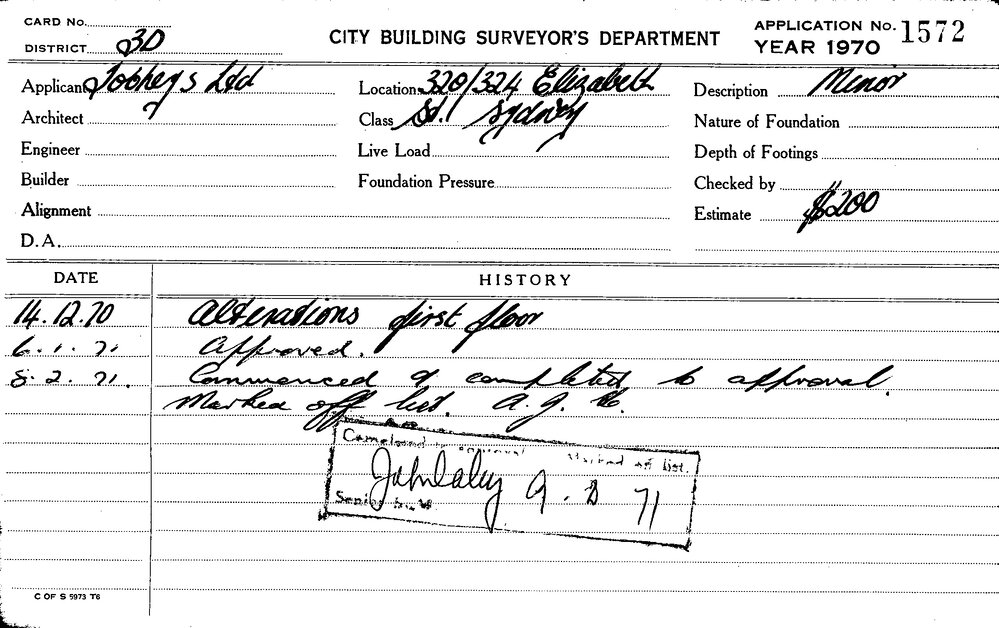 CARD No.
DISTRICT 3D
CITY BUILDING SURVEYOR'S DEPARTMENT
APPLICATION No. 1572
YEAR 1970
Applicant Tooheys Ltd
Location 320/324 Elizabeth
Description Minor
Architect
Class St. Sydney
Nature of Foundation
Engineer
Live Load
Depth of Footings
Builder
Foundation Pressure
Checked by
Alignment
Estimate $200
D.A.
DATE HISTORY
14.12.70 Alterations first floor
6.1.71 Approved.
8.2.71. Commenced & completed to approval
Marked off list. A.J.
Completed to approval Marked off list.
John Daley 9.2.71
Senior
C OF S 5973 T6